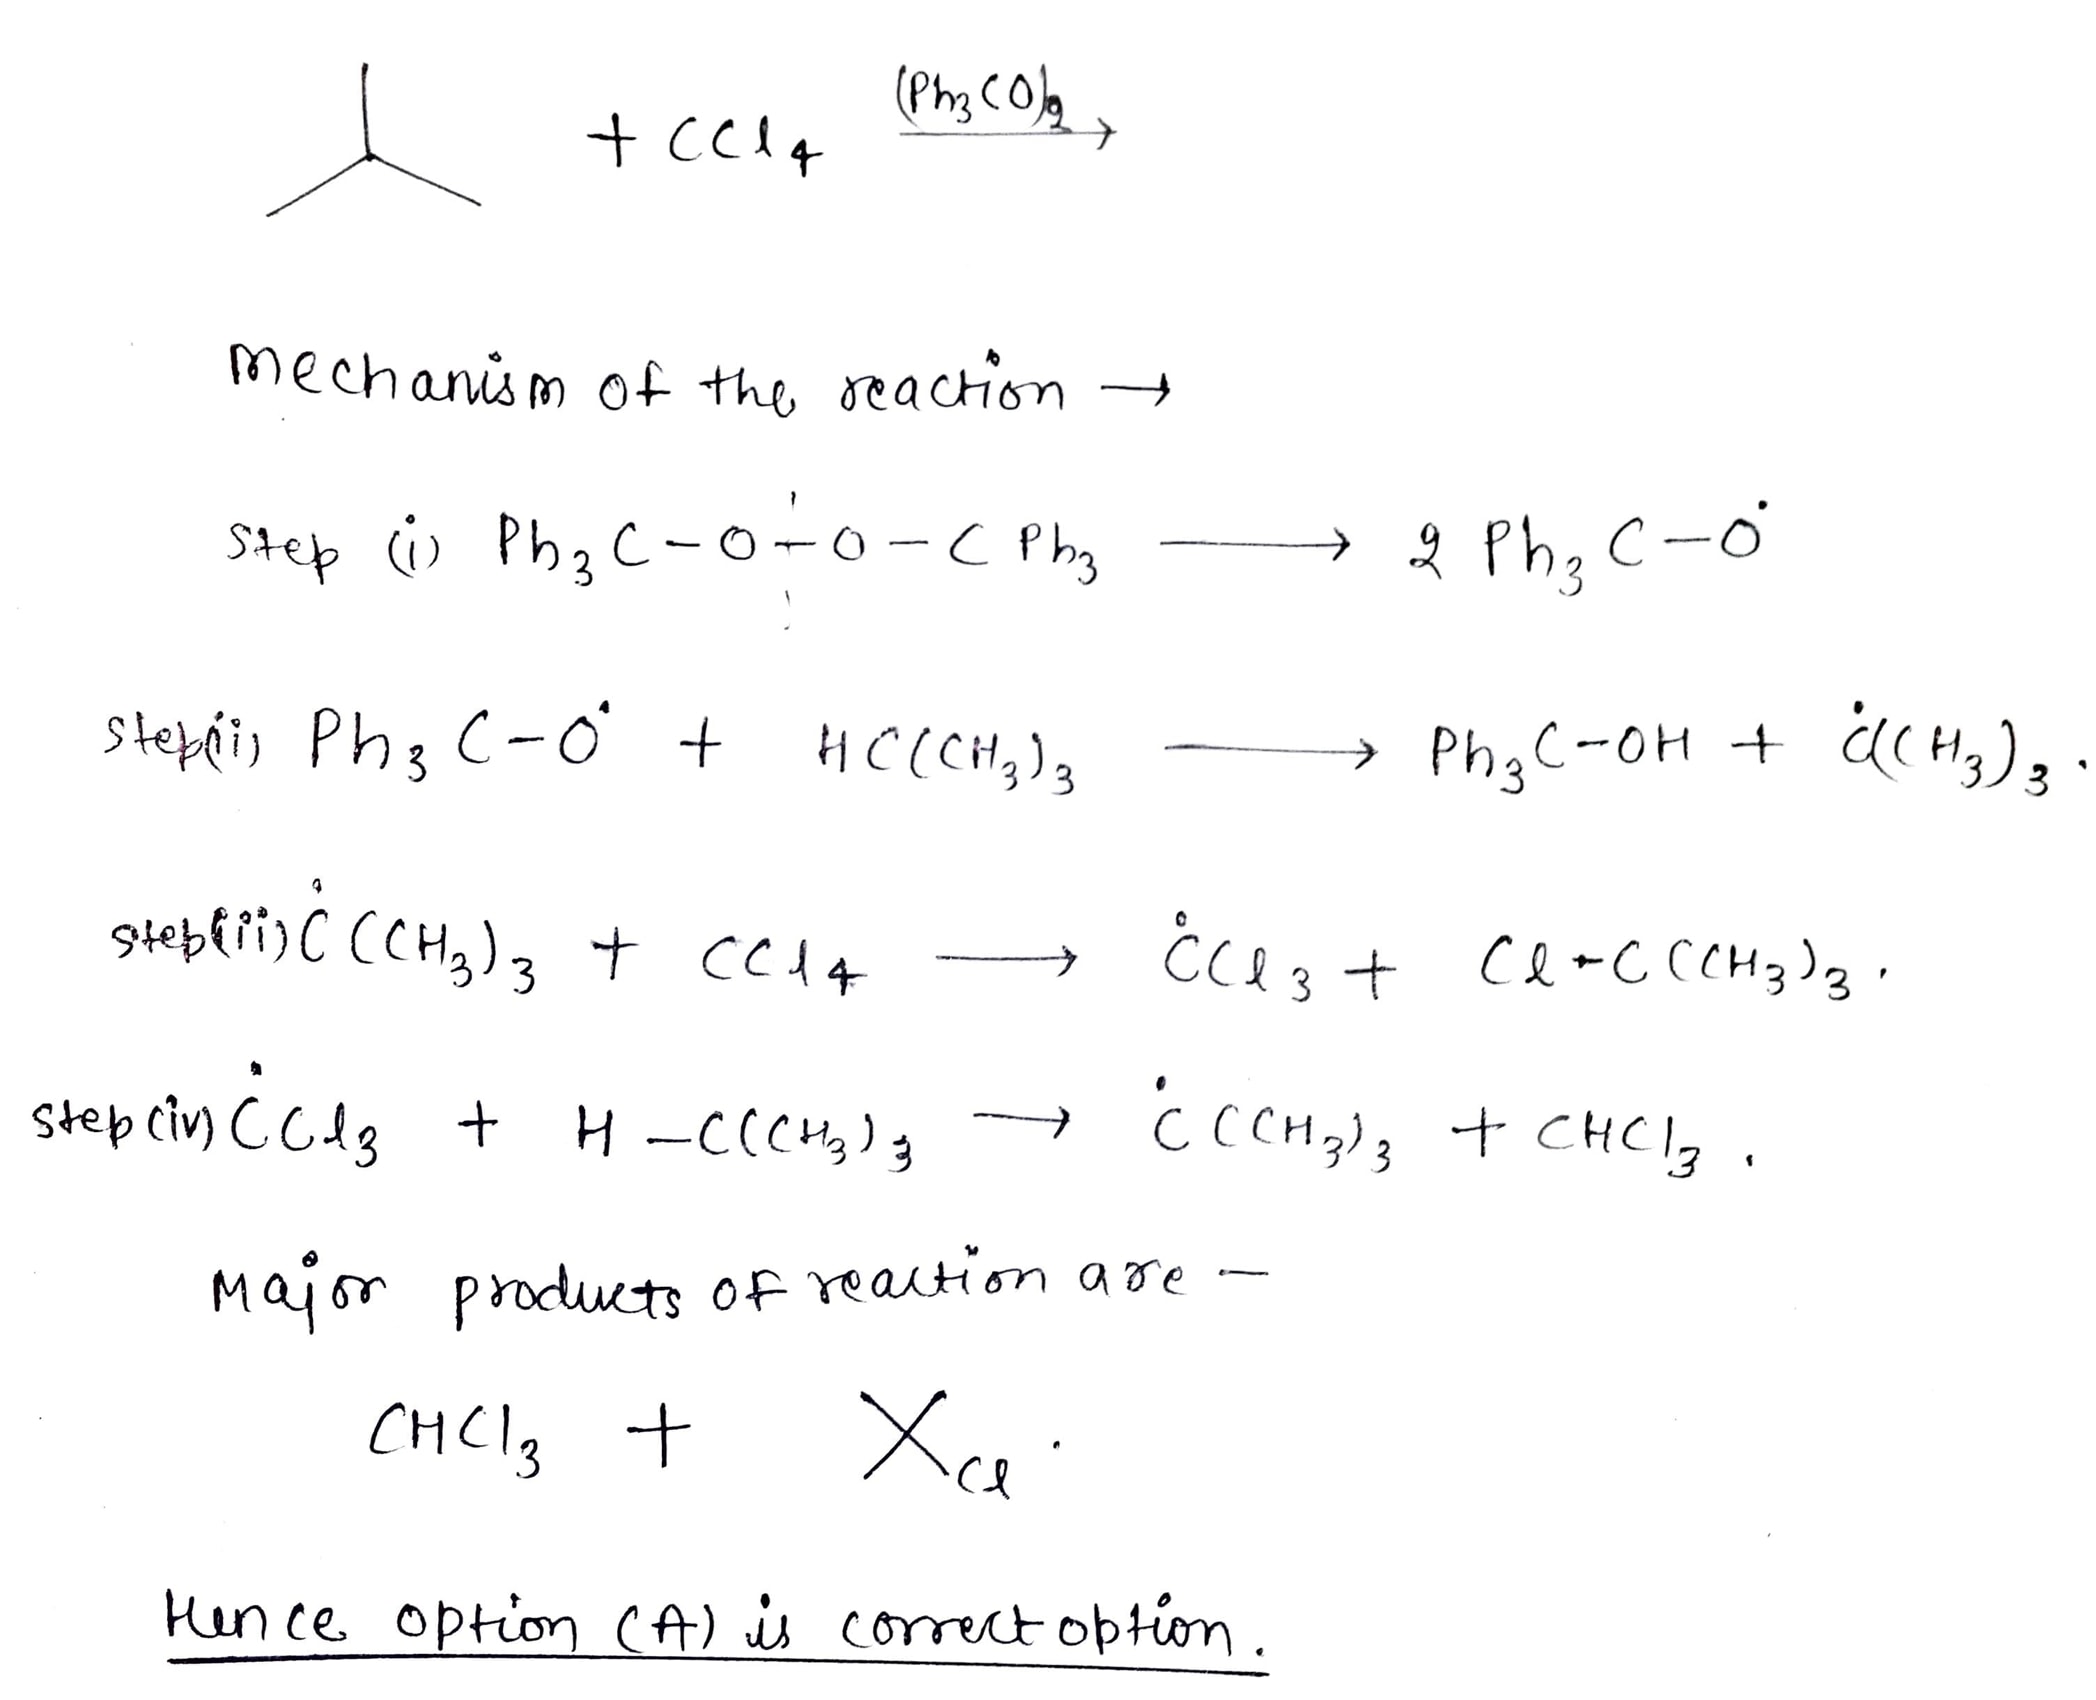 + CCl₄ (Ph₃CO)₂ →
Mechanism of the reaction →
Step (i) Ph₃C-O-O-CPh₃ → 2 Ph₃C-O•
Step(ii) Ph₃C-O• + HC(CH₃)₃ → Ph₃C-OH + •C(CH₃)₃.
Step(iii) •C(CH₃)₃ + CCl₄ → •CCl₃ + Cl-C(CH₃)₃.
Step(iv) •CCl₃ + H-C(CH₃)₃ → •C(CH₃)₃ + CHCl₃.
Major products of reaction are -
CHCl₃ + Cl.
Hence option (A) is correct option.